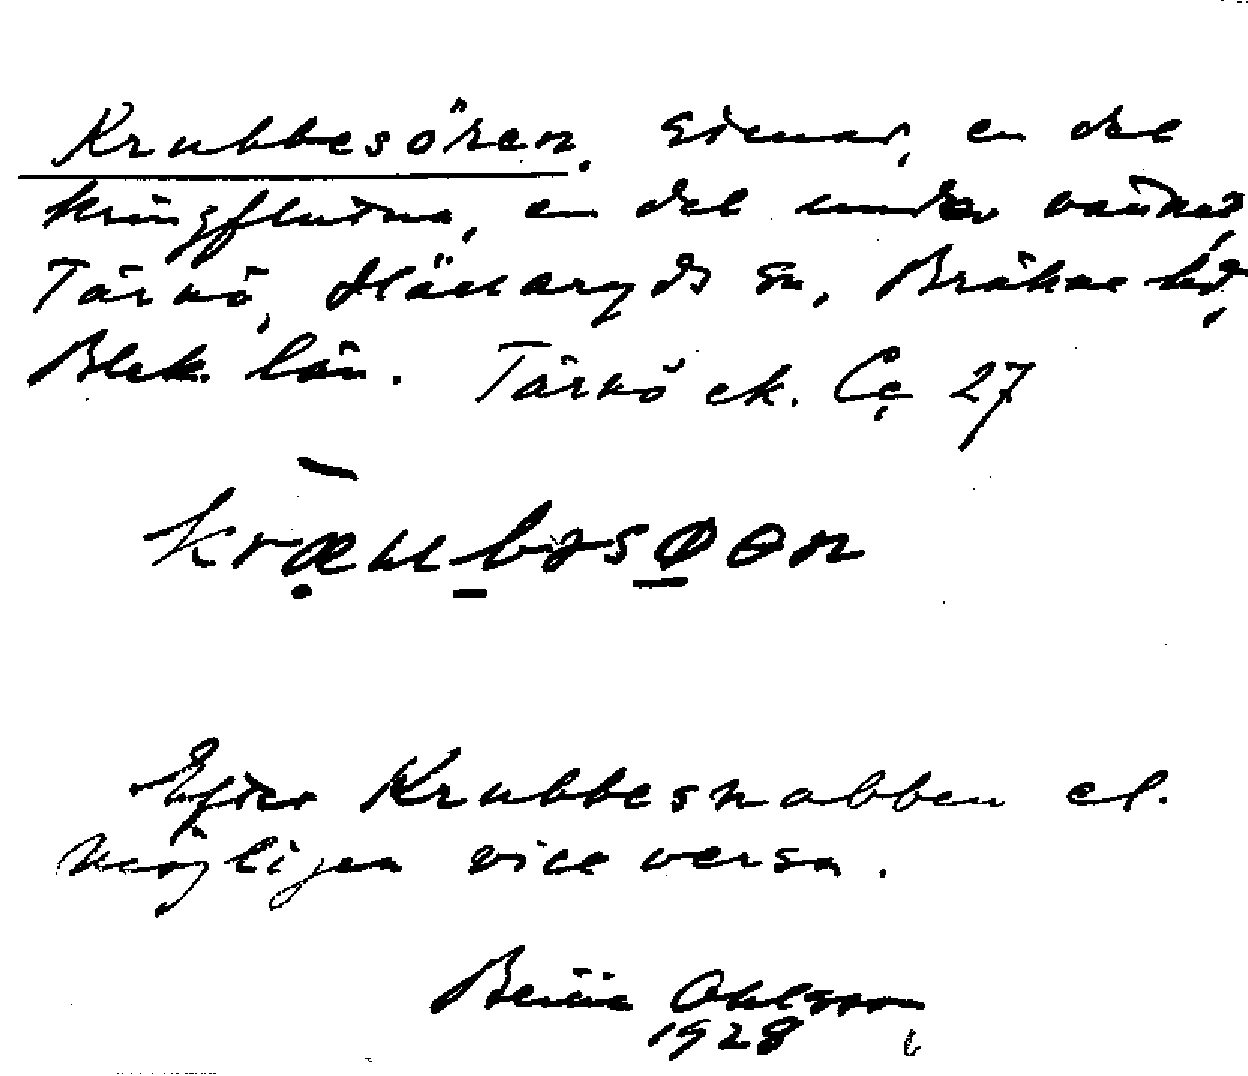 Krubbesören. Stenar, en del
kringflutna, en del under vattnet,
Tärnö, Hällaryds sn, Bräkne hd,
Blek. län. Tärnö ek. Cc 27
Efter Krubbesnabben el.
möjligen vice versa.
Ohlsson
1928